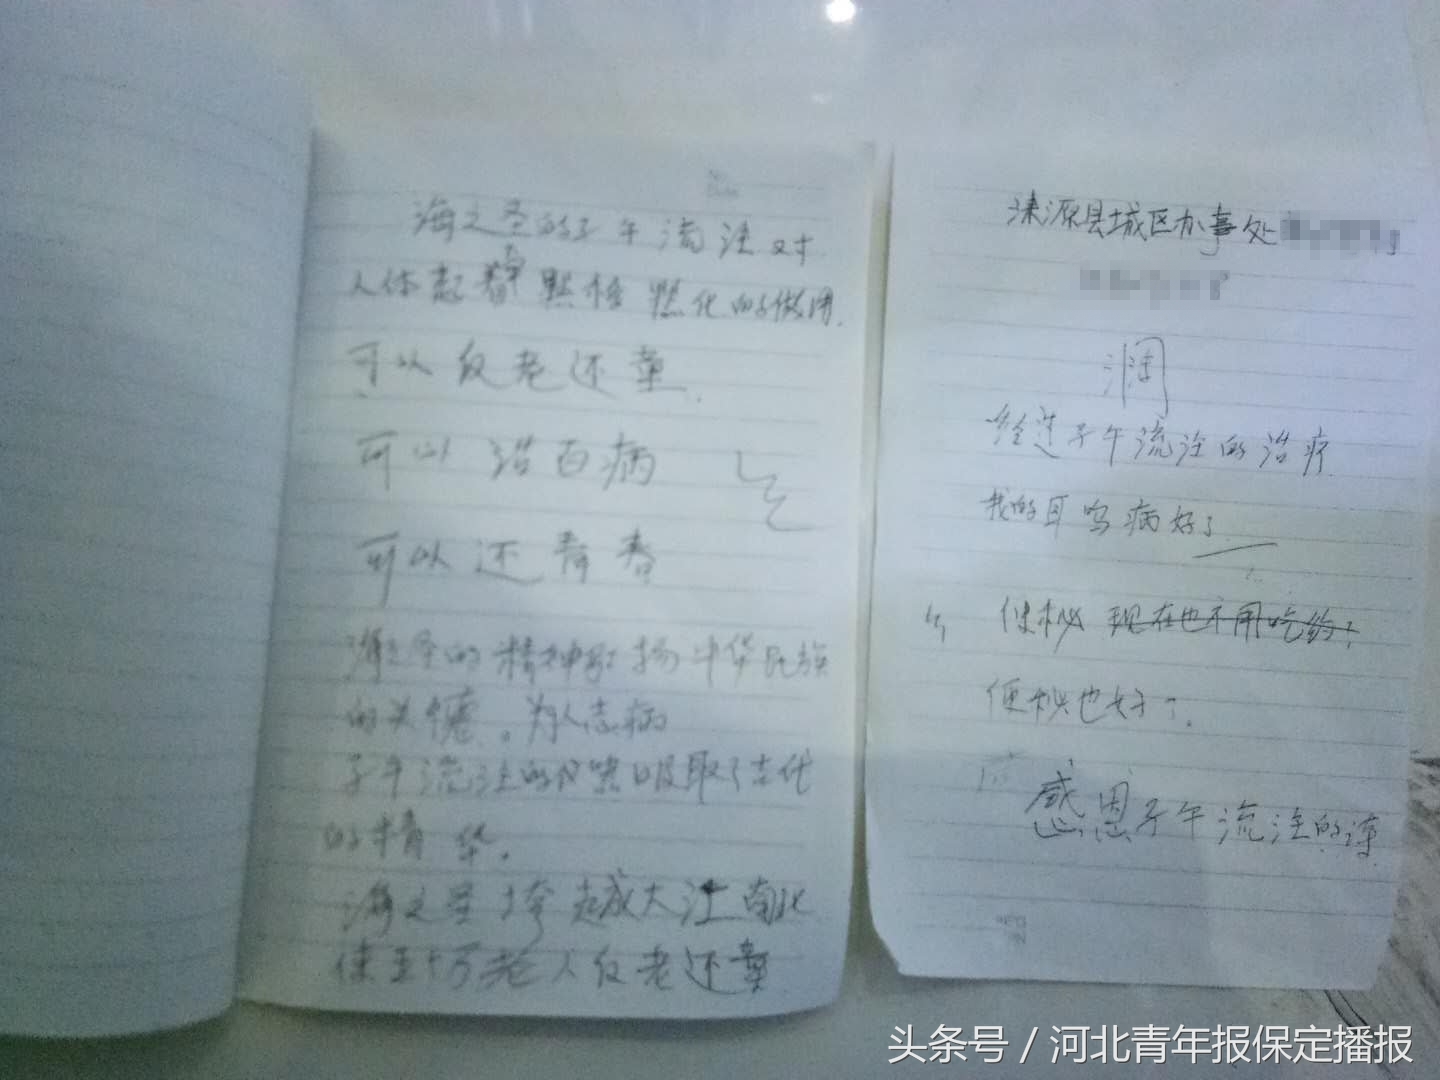 海之圣的子午流注对
人体起着 潜移 默化的做用.
可以返老还童.
可以治百病
可以还青春
海之圣的精神弘扬中华民族
的美德。为人治病
子午流注的 吸取了古代
的精华。
海之圣跨越大江南北
使五十万老人返老还童
涞源县城区办事处
经过子午流注的治疗
我的耳鸣病好了
便秘 现在也不用吃药了
便秘也好了.
感恩子午流注的
头条号 / 河北青年报保定播报